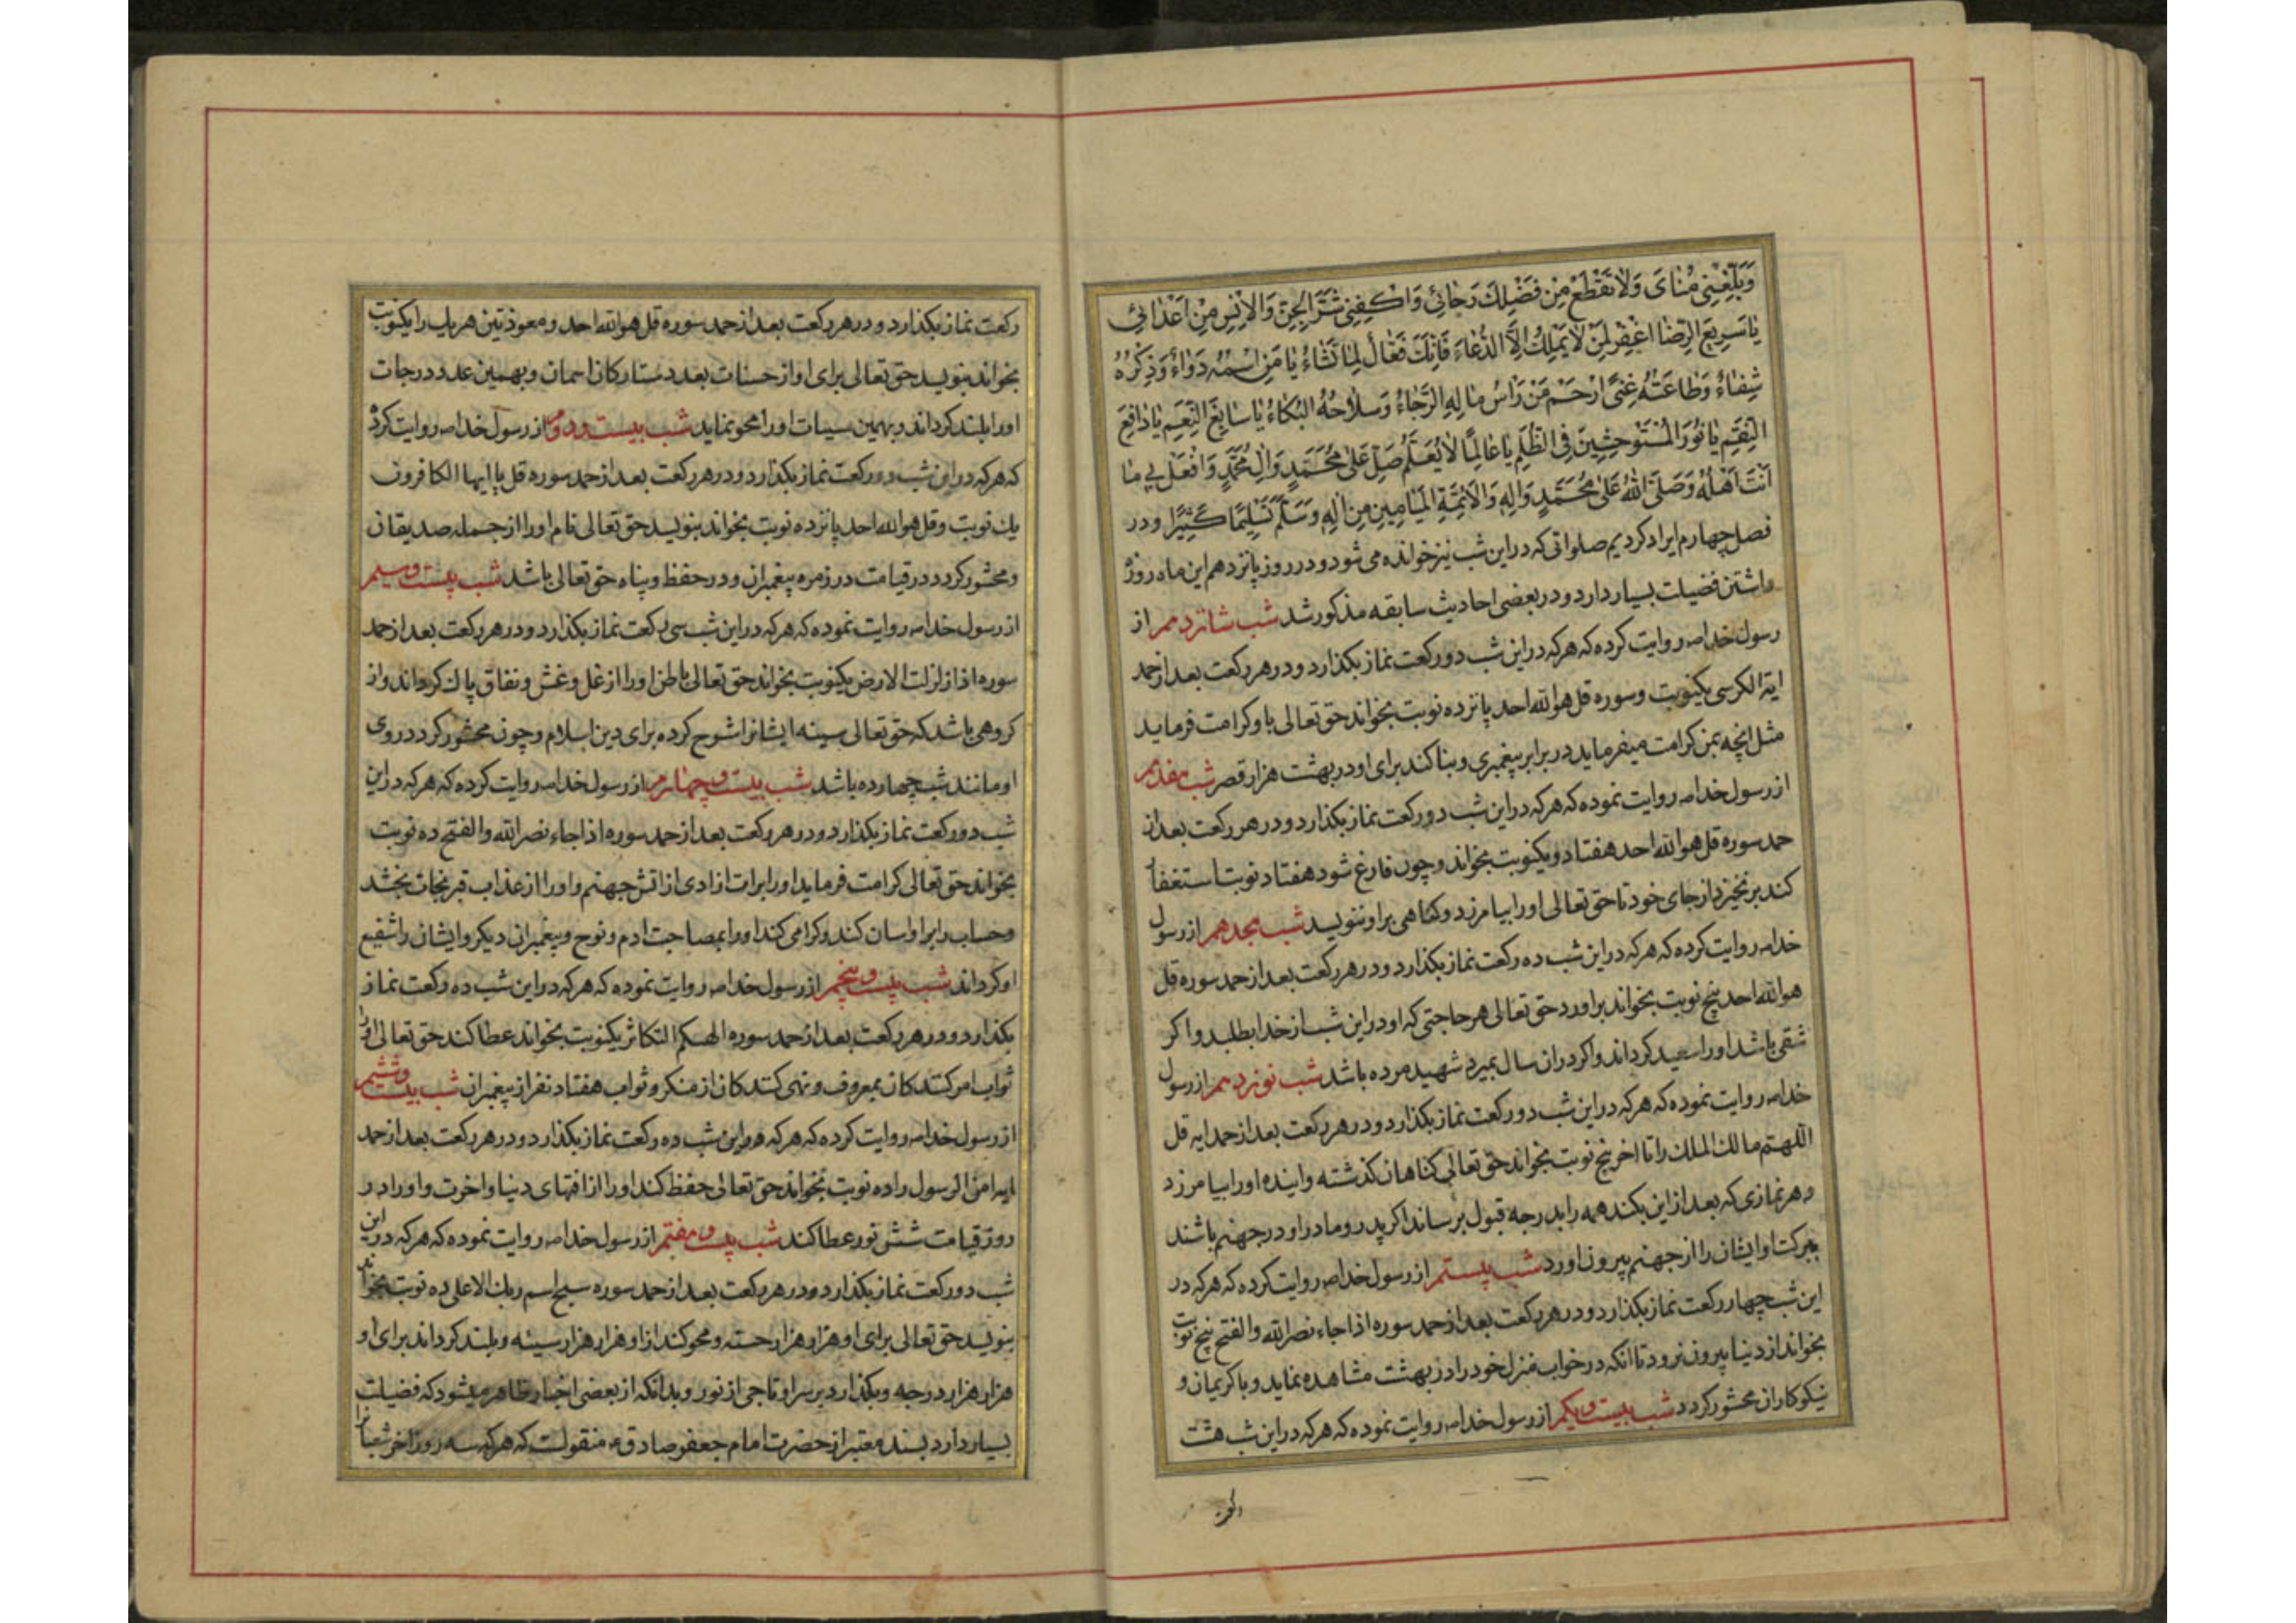 وَبَلِّغْنِي مُنَايَ وَلَا تَقْطَعْ مِنْ فَضْلِكَ رَجَائِي وَاكْفِنِي شَرَّ الْجِنِّ وَالْاِنْسِ مِنْ اَعْدَائِي
يَا سَرِيعَ الرِّضَا اغْفِرْ لِمَنْ لَا يَمْلِكُ اِلَّا الدُّعَاءَ فَاِنَّكَ فَعَّالٌ لِمَا تَشَاءُ يَا مَنِ اسْمُهُ دَوَاءٌ وَذِكْرُهُ
شِفَاءٌ وَطَاعَتُهُ غِنًى ارْحَمْ مَنْ رَاْسُ مَالِهِ الرَّجَاءُ وَسِلَاحُهُ الْبُكَاءُ يَا سَابِغَ النِّعَمِ يَا دَافِعَ
النِّقَمِ يَا نُورَ الْمُسْتَوْحِشِينَ فِي الظُّلَمِ يَا عَالِمًا لَا يُعَلَّمُ صَلِّ عَلَى مُحَمَّدٍ وَالِ مُحَمَّدٍ وَافْعَلْ بِي مَا
اَنْتَ اَهْلُهُ وَصَلَّى اللهُ عَلَى مُحَمَّدٍ وَالِهِ وَالْاَئِمَّةِ الْمَيَامِينِ مِنْ الِهِ وَسَلَّمَ تَسْلِيمًا كَثِيرًا و در
فصل چهارم ایراد کردیم صلواتی که در این شب نیز خوانده می شود و در روز پانزدهم این ماه روزه
داشتن فضیلت بسیار دارد و در بعضی احادیث سابقه مذکور شد شب شانزدهم از
رسول خدا ص روایت کرده که هرکه در این شب دو رکعت نماز بکذارد و در هر رکعت بعد از حمد
ایة الکرسی یکنوبت و سوره قل هو الله احد پانزده نوبت بخواند حق تعالی باو کرامت فرماید
مثل انچه بمن کرامت میفرماید در برابر پیغمبری و بنا کند برای او در بهشت هزار قصر شب هفدهم
از رسول خدا ص روایت نموده که هرکه در این شب دو رکعت نماز بکذارد و در هر رکعت بعد از
حمد سوره قل هو الله احد هفتاد و یکنوبت بخواند و چون فارغ شود هفتاد نوبت استغفار
کند بر نخیزد از جای خود تا حق تعالی او را بیامرزد و کناهی بر او ننویسد شب هجدهم از رسول
خدا ص روایت کرده که هرکه در این شب ده رکعت نماز بکذارد و در هر رکعت بعد از حمد سوره قل
هو الله احد پنج نوبت بخواند براورد حق تعالی هر حاجتی که او در این شب از خدا بطلبد و اکر
شقی باشد او را سعید کرداند و اکر در ان سال بمیرد شهید مرده باشد شب نوزدهم از رسول
خدا ص روایت نموده که هرکه در این شب دو رکعت نماز بکذارد و در هر رکعت بعد از حمد ایه قل
اللهم مالك الملك را تا اخر پنج نوبت بخواند حق تعالی کناهان کذشته و اینده او را بیامرزد
و هر نمازی که بعد از این بکند همه را بدرجه قبول برساند اکر پدر و مادر او در جهنم باشند
ببرکت او ایشان را از جهنم بیرون اورد شب بیستم از رسول خدا ص روایت کرده که هرکه در
این شب چهار رکعت نماز بکذارد و در هر رکعت بعد از حمد سوره اذا جاء نصر الله والفتح پنج نوبت
بخواند از دنیا بیرون نرود تا انکه در خواب منزل خود را در بهشت مشاهده نماید و با کریمان و
نیکوکاران محشور کردد شب بیست و یکم از رسول خدا ص روایت نموده که هرکه در این شب هشت
رکعت نماز بکذارد و در هر رکعت بعد از حمد سوره قل هو الله احد و معوذتین هر یك را یکنوبت
بخواند بنویسد حق تعالی برای او از حسنات بعدد ستارکان اسمان و بهمین عدد درجات
او را بلند کرداند و بهمین سیئات او را محو نماید شب بیست و دوم از رسول خدا ص روایت کرده
که هرکه در این شب دو رکعت نماز بکذارد و در هر رکعت بعد از حمد سوره قل یا ایها الکافرون
یك نوبت و قل هو الله احد پانزده نوبت بخواند بنویسد حق تعالی نام او را از جمله صدیقان
و محشور کردد در قیامت در زمره پیغمبران و در حفظ و پناه حق تعالی باشد شب بیست و سیم
از رسول خدا ص روایت نموده که هرکه در این شب سی رکعت نماز بکذارد و در هر رکعت بعد از حمد
سوره اذا زلزلت الارض یکنوبت بخواند حق تعالی باطن او را از غل و غش و نفاق پاك کرداند و از
کروهی باشد که حق تعالی سینه ایشانرا شرح کرده برای دین اسلام و چون محشور کردد روی
او مانند شب چهارده باشد شب بیست و چهارم از رسول خدا ص روایت کرده که هرکه در این
شب دو رکعت نماز بکذارد و در هر رکعت بعد از حمد سوره اذا جاء نصر الله والفتح ده نوبت
بخواند حق تعالی کرامت فرماید او را برات ازادی از اتش جهنم و او را از عذاب قبر نجات بخشد
و حساب را بر او اسان کند و کرامی کند او را بمصاحبت ادم و نوح و پیغمبران دیکر و ایشان را شفیع
او کرداند شب بیست و پنجم از رسول خدا ص روایت نموده که هرکه در این شب ده رکعت نماز
بکذارد و در هر رکعت بعد از حمد سوره الهیکم التکاثر یکنوبت بخواند عطا کند حق تعالی او را
ثواب امر کنندکان بمعروف و نهی کنندکان از منکر و ثواب هفتاد نفر از پیغمبران شب بیست و ششم
از رسول خدا ص روایت کرده که هرکه در این شب ده رکعت نماز بکذارد و در هر رکعت بعد از حمد
ایه امن الرسول را ده نوبت بخواند حق تعالی حفظ کند او را از افتهای دنیا و اخرت و او را در
روز قیامت شش نور عطا کند شب بیست و هفتم از رسول خدا ص روایت نموده که هرکه در این
شب دو رکعت نماز بکذارد و در هر رکعت بعد از حمد سوره سبح اسم ربك الاعلی ده نوبت بخواند
بنویسد حق تعالی برای او هزار هزار حسنه و محو کند از او هزار هزار سیئه و بلند کرداند برای او
هزار هزار درجه و بکذارد بر سر او تاجی از نور و بدانکه از بعضی اخبار ظاهر میشود که فضیلت
بسیار دارد بسند معتبر از حضرت امام جعفر صادق ع منقولست که هرکه سه روز اخر شعبان را